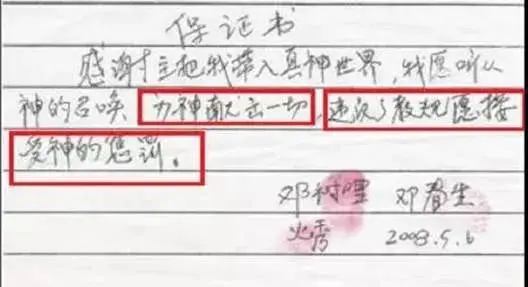 保证书
感谢主把我带入真神世界,我愿听从
神的召唤 为神献出一切,违反了教规愿接
受神的惩罚。
邓 邓春生
火秀 2008.5.6